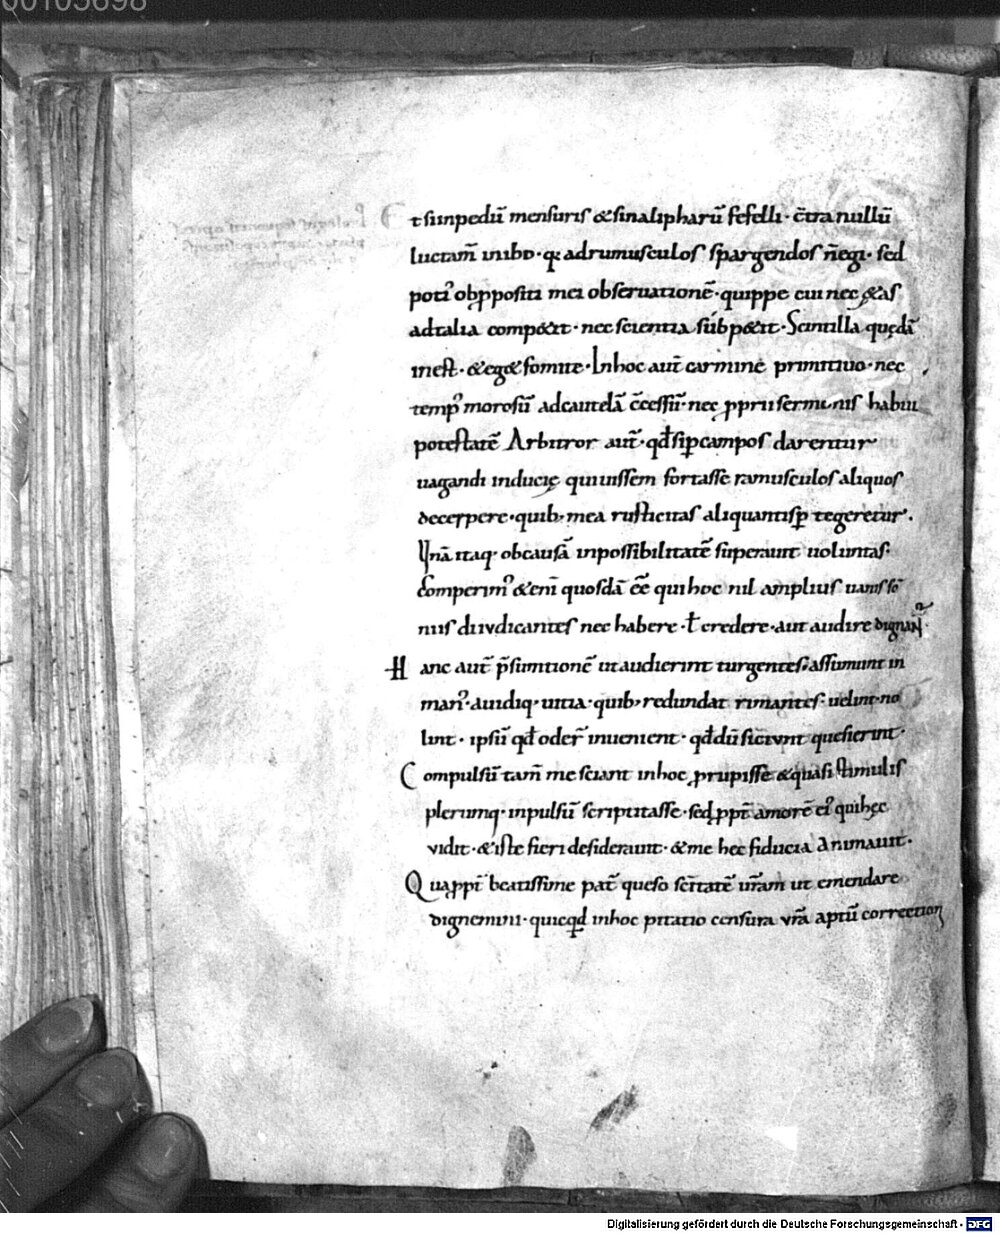 00105698
Et si inpediū mensuris & sinalipharū fefelli · c̄tra nullū
luctam̄ inibo · q; ad rumusculos spargendos n̄ egi · sed
poti᾽ ob ꝓpositi mei obseruationē · quippe cui nec &as
ad talia comp&it · nec scientia sub p&it · Scintilla quędā
inest · & eg& fomite · In hoc aut̄ carmine primitiuo · nec
temp᾽ morosū ad cautelā c̄cessū · nec ꝓprii sermonis habui
potestatē Arbitror aut̄ · qđ si ꝑ campos darentur
uagandi inducię quiuissem fortasse ramusculos aliquos
decerpere · quib; mea rusticitas aliquantisꝑ tegeretur.
Vnā itaq; ob causā inpossibilitatē superauit uoluntas ·
Comperim᾽ &eni quosdā ēē qui hoc nil amplius uanis sō
niis diiudicantes nec habere · ł credere · aut audire dignant̄ ·
Hanc aut̄ p̄sumtionē ut audierint turgentes · assumunt in
man᾽ · auidiq; uitia · quib; redundat rimantes · uelint no
lint · ipsū qđ oder̄ inuenient · qđ dū sitiunt quesierint ·
Compulsū tam̄ me sciant in hoc ꝓrupisse & quasi stimulis
plerumq; inpulsū scriptitasse · sed ꝓpt̄ amorē ei᾽ qui hęc
vidit · & iste fieri desiderauit · & me hec fiducia Animauit.
Quaꝓpt̄ beatissime pat̄ queso sc̄itatē ur̄am ut emendare
dignemini · quicqđ in hoc pitatio censura vr̄a aptū correction
Digitalisierung gefördert durch die Deutsche Forschungsgemeinschaft · DFG